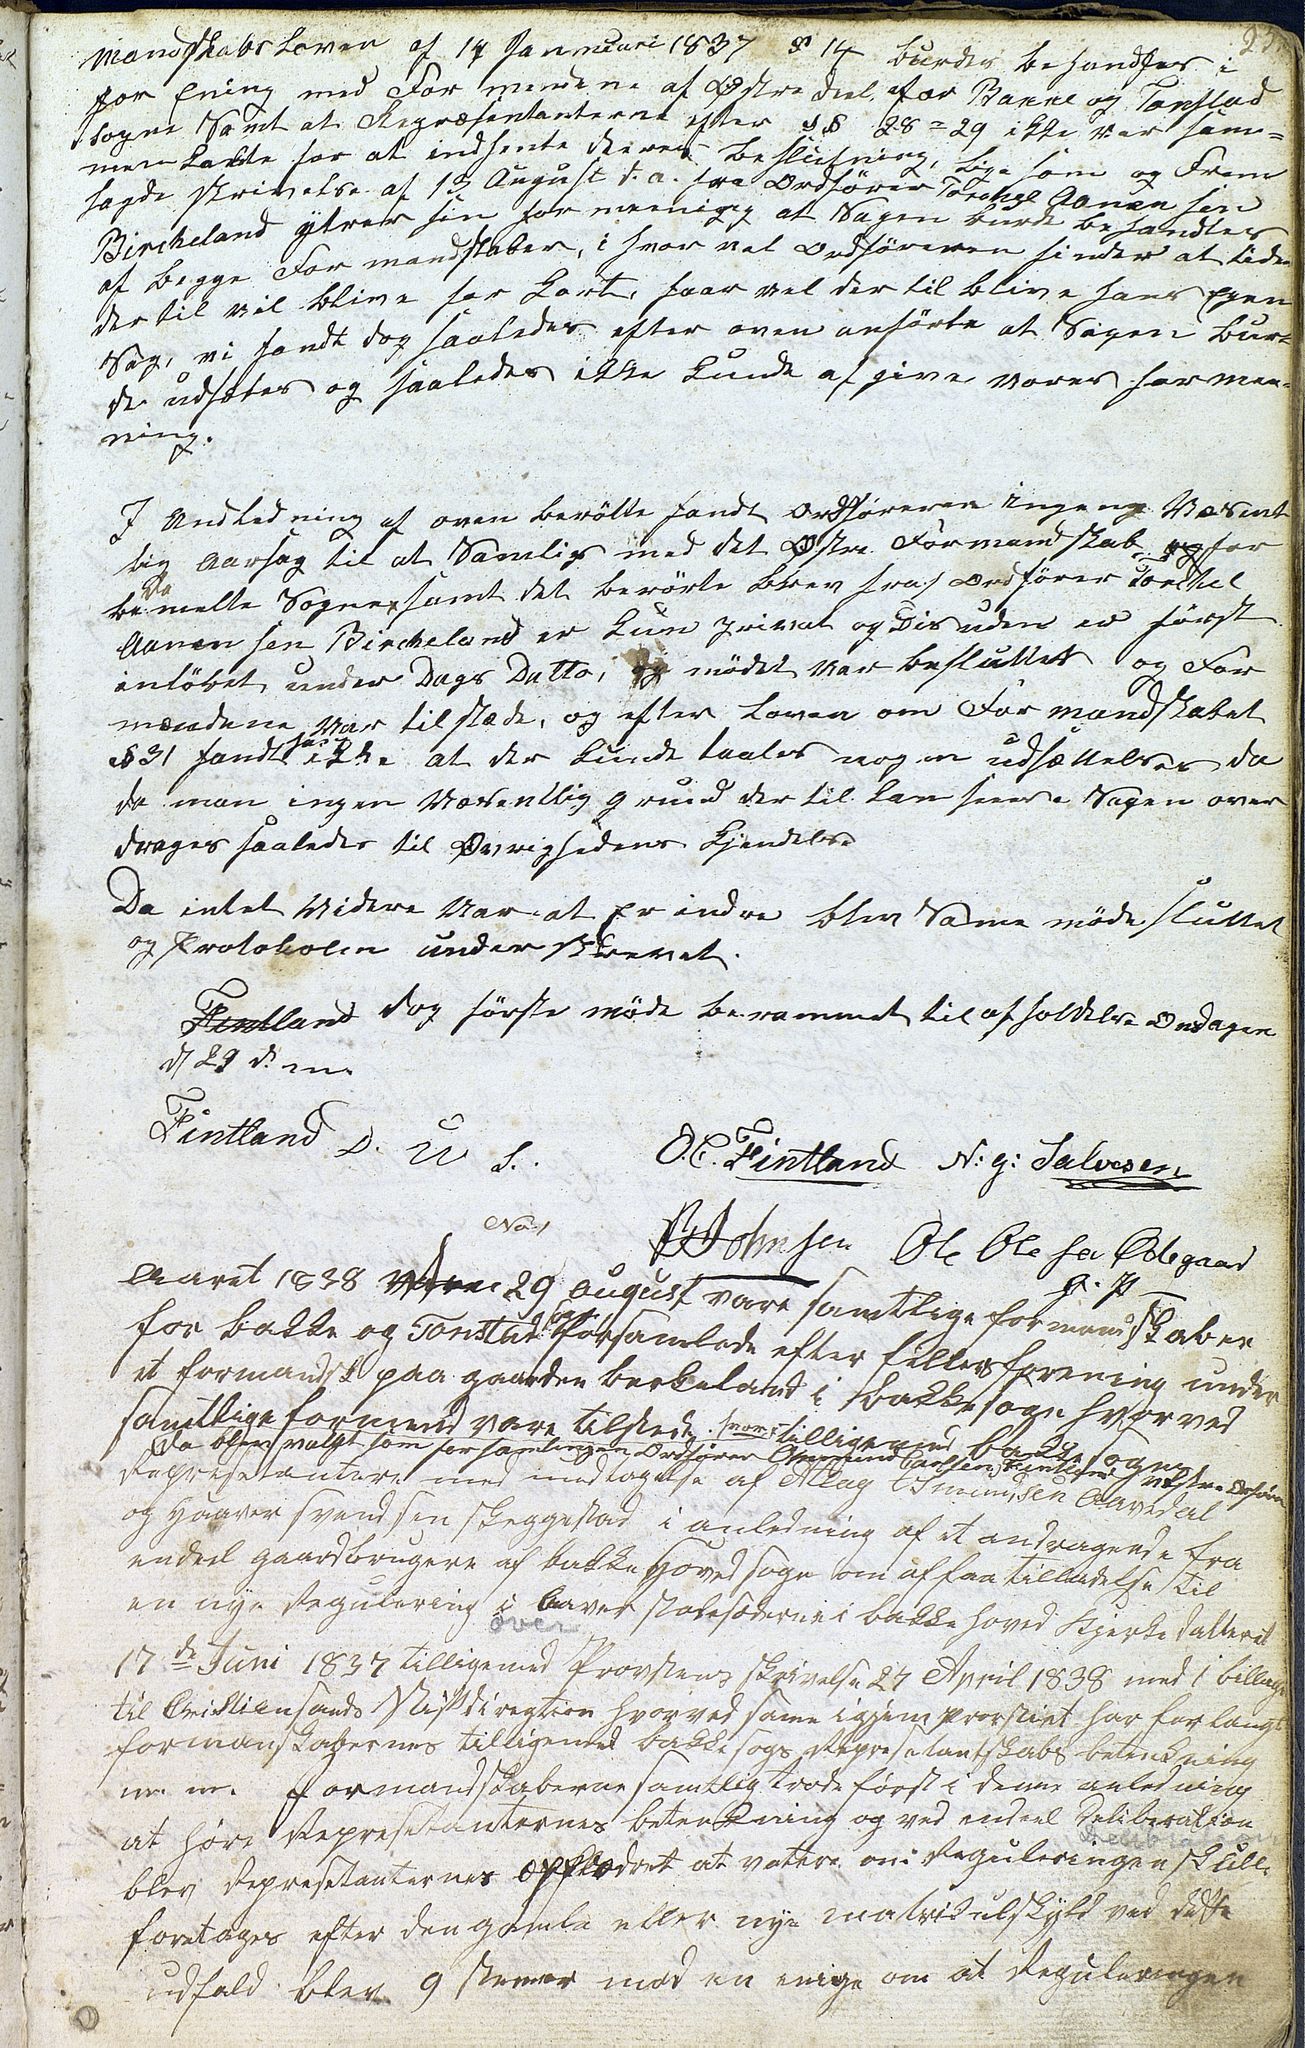 Mandskabs Loven af 14 Januari 1837 § 14 burde behandles i
for Ening med For mendene af Østre deel, for Bakke og Tonstad
Sogne Samt at Repræsentanterne efter §§ 28 = 29 ikke var sam=
men kaldte for at indhente deres beslutning, lige som og Frem
lagde skrivelse af 13 August d. a. fra Ordfører Torkel Aanen sen
Bircheland ytrer sin for meening at Sagen burde behandles
af begge For mandskaber, i hvor vel Ordføreren finder at tiden
der til vil blive for kort, saa vel der til blive hans Egen
Sag, vi fandt dog saaledes efter oven anførte at Sagen bur=
de udsættes og saaledes ikke kunde af give vores for mee=
ning.
I Andledning af oven berørte fandt Ordføreren ingen Væsent
lig Aarsag til at Samles med det Østre Formandskab for
be melte Sogne, samt det berørte brev fra Ordfører Torkel
Da
Aanen sen Bircheland er kun privat og Des uden er først
indløbet under Dags Datto, mødet var besluttet og For
mændene var tilstæde, og efter Loven om For mandskabet
§ 31 fandt ikke at der kunde taales nogen udsættelse da
da man ingen Væsentlig grund der til kan see Sagen over
drages saaledes til Øvrighedens Kjendelse
Da intet Videre Var at Er indre blev Same møde sluttet
og Protokolen under skrevet.
Fintland dog første møde berammet til af holdelse Onsdagen
d 29 d. m.
Fintland D. U S.
O. C. Fintland N: g: Salvesen
No 1
Johnsen Ole Ole sen Ødegaard
Aaret 1838 29 August vare samtlige formandskaber
for bakke og Tonstad Sogn forsamlede efter felles forening under
et formandsk paa gaarden berkeland i bakkesogn hvorved
samtlige formend vare tilstede tilligemed bakke sogns
Da blev valgt som forsamlingens Ordfører Fintland Vestre Ordfører
Represetantere med undtagelse af Atlag Osmundsen Aavedal
og Haaver svendsen skeggestad i anledning af et andragende fra
endeel gaardbrugere af bakke Hoved sogn om at faa tilladelse til
en nye Regulering i Aaver stolesæderne i bakke hoved Kjerke datteret
over
17de Juni 1837 tilligemed Provstens skrivelse 27 April 1838 med 1 billage
til Cristiensands Stiftdiregtion hvorved same igjem provstiet har forlangt
formanskabernes tilligemed bakkesogs Represetantskabs betenkning
m. m. formandskaberne samtlig trode først i denne anledning
at høre Represetanternes betenkning og ved endeel Deliberation
blev Represetanternes opfodret at votere om Reguleringen skulle
foretages efter den gamle eller nye matrikulskyld ved dette
udfald blev 9 stemer mod en enige om at Reguleringen